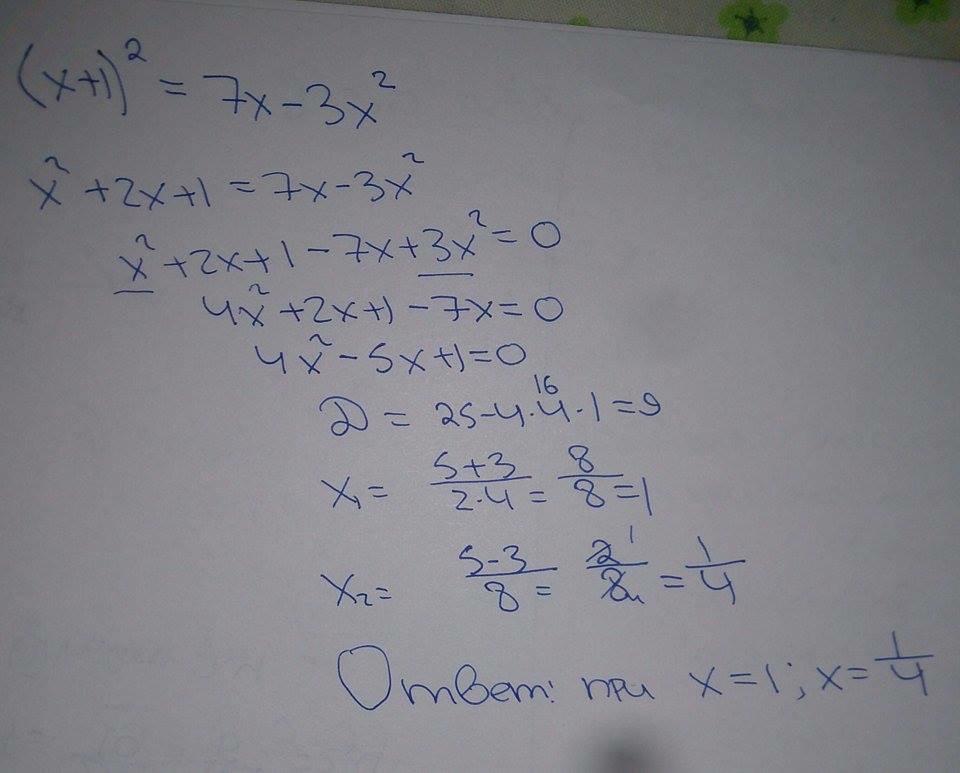 (x+1)² = 7x-3x²
x²+2x+1=7x-3x²
x²+2x+1-7x+3x²=0
4x²+2x+1-7x=0
4x²-5x+1=0
16
D = 25-4·4·1=9
x₁= (5+3)/(2·4) = 8/8 = 1
x₂= (5-3)/8 = 2 1/8 4 = 1/4
Ответ: при x=1; x=1/4